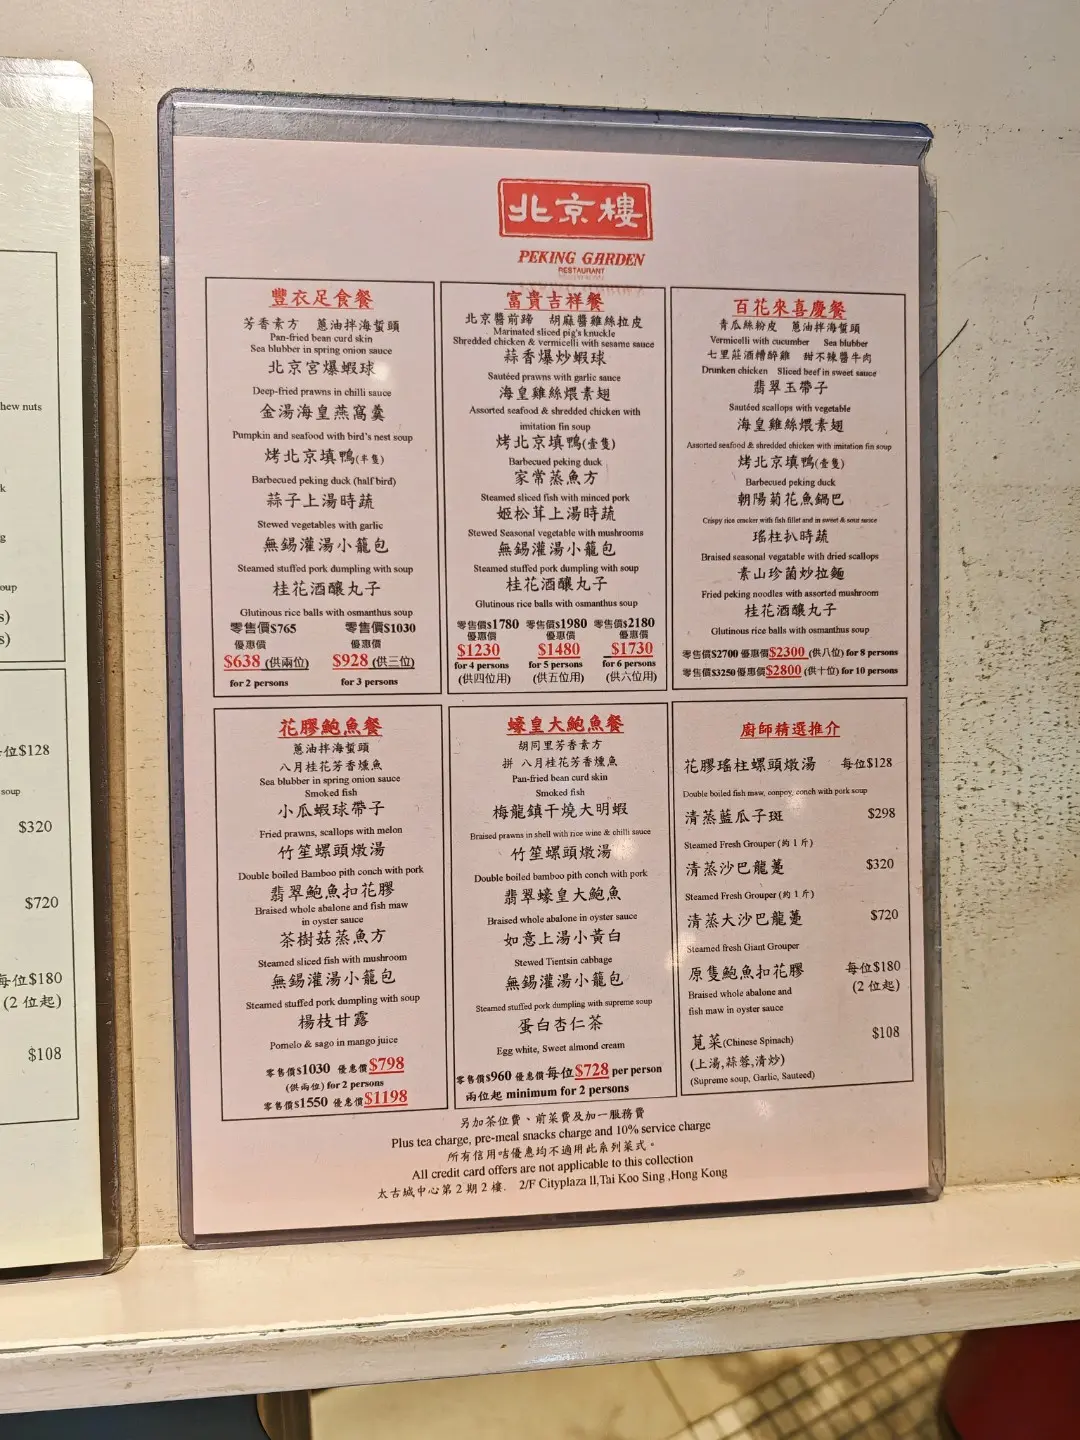 hew nuts
k
g
oup
s)
s)
每位$128
soup
$320
$720
每位$180
(2 位起)
$108
北京樓
PEKING GARDEN
RESTAURANT
豐衣足食餐
芳香素方 蔥油拌海蜇頭
Pan-fried bean curd skin
Sea blubber in spring onion sauce
北京宮爆蝦球
Deep-fried prawns in chilli sauce
金湯海皇燕窩羹
Pumpkin and seafood with bird's nest soup
烤北京填鴨(半隻)
Barbecued peking duck (half bird)
蒜子上湯時蔬
Stewed vegetables with garlic
無錫灌湯小籠包
Steamed stuffed pork dumpling with soup
桂花酒釀丸子
Glutinous rice balls with osmanthus soup
零售價$765 零售價$1030
優惠價 優惠價
$638 (供兩位) $928 (供三位)
for 2 persons for 3 persons
富貴吉祥餐
北京醬前蹄 胡麻醬雞絲拉皮
Marinated sliced pig's knuckle
Shredded chicken & vermicelli with sesame sauce
蒜香爆炒蝦球
Sautéed prawns with garlic sauce
海皇雞絲煨素翅
Assorted seafood & shredded chicken with
imitation fin soup
烤北京填鴨(壹隻)
Barbecued peking duck
家常蒸魚方
Steamed sliced fish with minced pork
姬松茸上湯時蔬
Stewed Seasonal vegetable with mushrooms
無錫灌湯小籠包
Steamed stuffed pork dumpling with soup
桂花酒釀丸子
Glutinous rice balls with osmanthus soup
零售價$1780 零售價$1980 零售價$2180
優惠價 優惠價 優惠價
$1230 $1480 $1730
for 4 persons for 5 persons for 6 persons
(供四位用) (供五位用) (供六位用)
百花來喜慶餐
青瓜絲粉皮 蔥油拌海蜇頭
Vermicelli with cucumber Sea blubber
七里莊酒糟醉雞 甜不辣醬牛肉
Drunken chicken Sliced beef in sweet sauce
翡翠玉帶子
Sautéed scallops with vegetable
海皇雞絲煨素翅
Assorted seafood & shredded chicken with imitation fin soup
烤北京填鴨(壹隻)
Barbecued peking duck
朝陽菊花魚鍋巴
Crispy rice cracker with fish fillet and in sweet & sour sauce
瑤柱扒時蔬
Braised seasonal vegatable with dried scallops
素山珍菌炒拉麵
Fried peking noodles with assorted mushroom
桂花酒釀丸子
Glutinous rice balls with osmanthus soup
零售價$2700 優惠價$2300 (供八位) for 8 persons
零售價$3250 優惠價$2800 (供十位) for 10 persons
花膠鮑魚餐
蔥油拌海蜇頭
八月桂花芳香燻魚
Sea blubber in spring onion sauce
Smoked fish
小瓜蝦球帶子
Fried prawns, scallops with melon
竹笙螺頭燉湯
Double boiled Bamboo pith conch with pork
翡翠鮑魚扣花膠
Braised whole abalone and fish maw
in oyster sauce
茶樹菇蒸魚方
Steamed sliced fish with mushroom
無錫灌湯小籠包
Steamed stuffed pork dumpling with soup
楊枝甘露
Pomelo & sago in mango juice
零售價$1030 優惠價$798
(供兩位) for 2 persons
零售價$1550 優惠價$1198
蠔皇大鮑魚餐
胡同里芳香素方
拼 八月桂花芳香燻魚
Pan-fried bean curd skin
Smoked fish
梅龍鎮干燒大明蝦
Braised prawns in shell with rice wine & chilli sauce
竹笙螺頭燉湯
Double boiled bamboo pith conch with pork
翡翠蠔皇大鮑魚
Braised whole abalone in oyster sauce
如意上湯小黃白
Stewed Tientsin cabbage
無錫灌湯小籠包
Steamed stuffed pork dumpling with supreme soup
蛋白杏仁茶
Egg white, Sweet almond cream
零售價$960 優惠價每位$728 per person
兩位起 minimum for 2 persons
廚師精選推介
花膠瑤柱螺頭燉湯 每位$128
Double boiled fish maw, conpoy, conch with pork soup
清蒸藍瓜子斑 $298
Steamed Fresh Grouper (約 1 斤)
清蒸沙巴龍躉 $320
Steamed Fresh Grouper (約 1 斤)
清蒸大沙巴龍躉 $720
Steamed fresh Giant Grouper
原隻鮑魚扣花膠 每位$180
Braised whole abalone and (2 位起)
fish maw in oyster sauce
莧菜(Chinese Spinach) $108
(上湯,蒜蓉,清炒)
(Supreme soup, Garlic, Sauteed)
另加茶位費、前菜費及加一服務費
Plus tea charge, pre-meal snacks charge and 10% service charge
所有信用咭優惠均不適用此系列菜式。
All credit card offers are not applicable to this collection
太古城中心第 2 期 2 樓. 2/F Cityplaza II,Tai Koo Sing ,Hong Kong